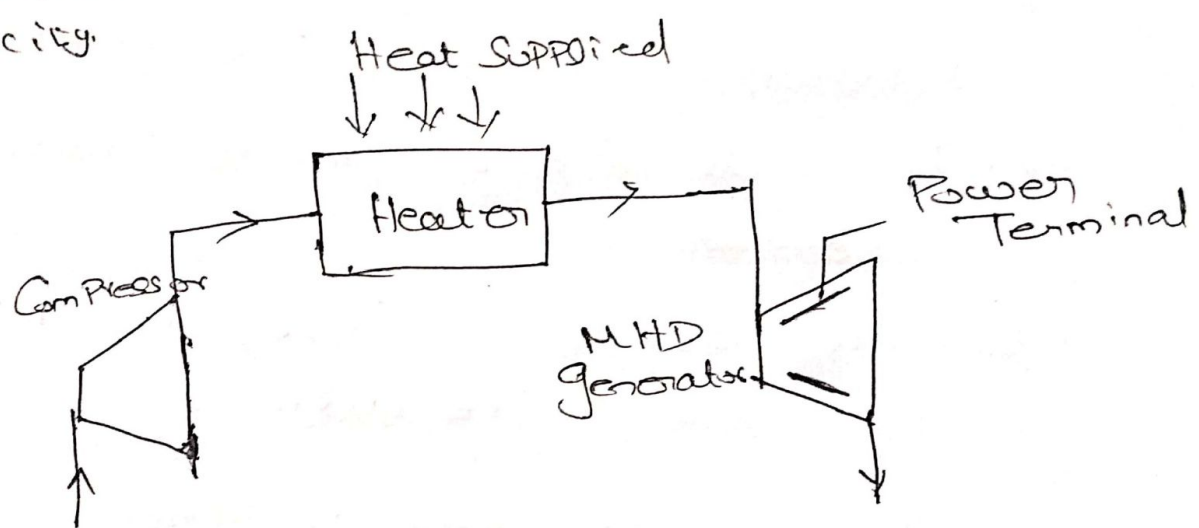 city.
Heat Supplied
Heater
Power
Terminal
Compressor
MHD
generator